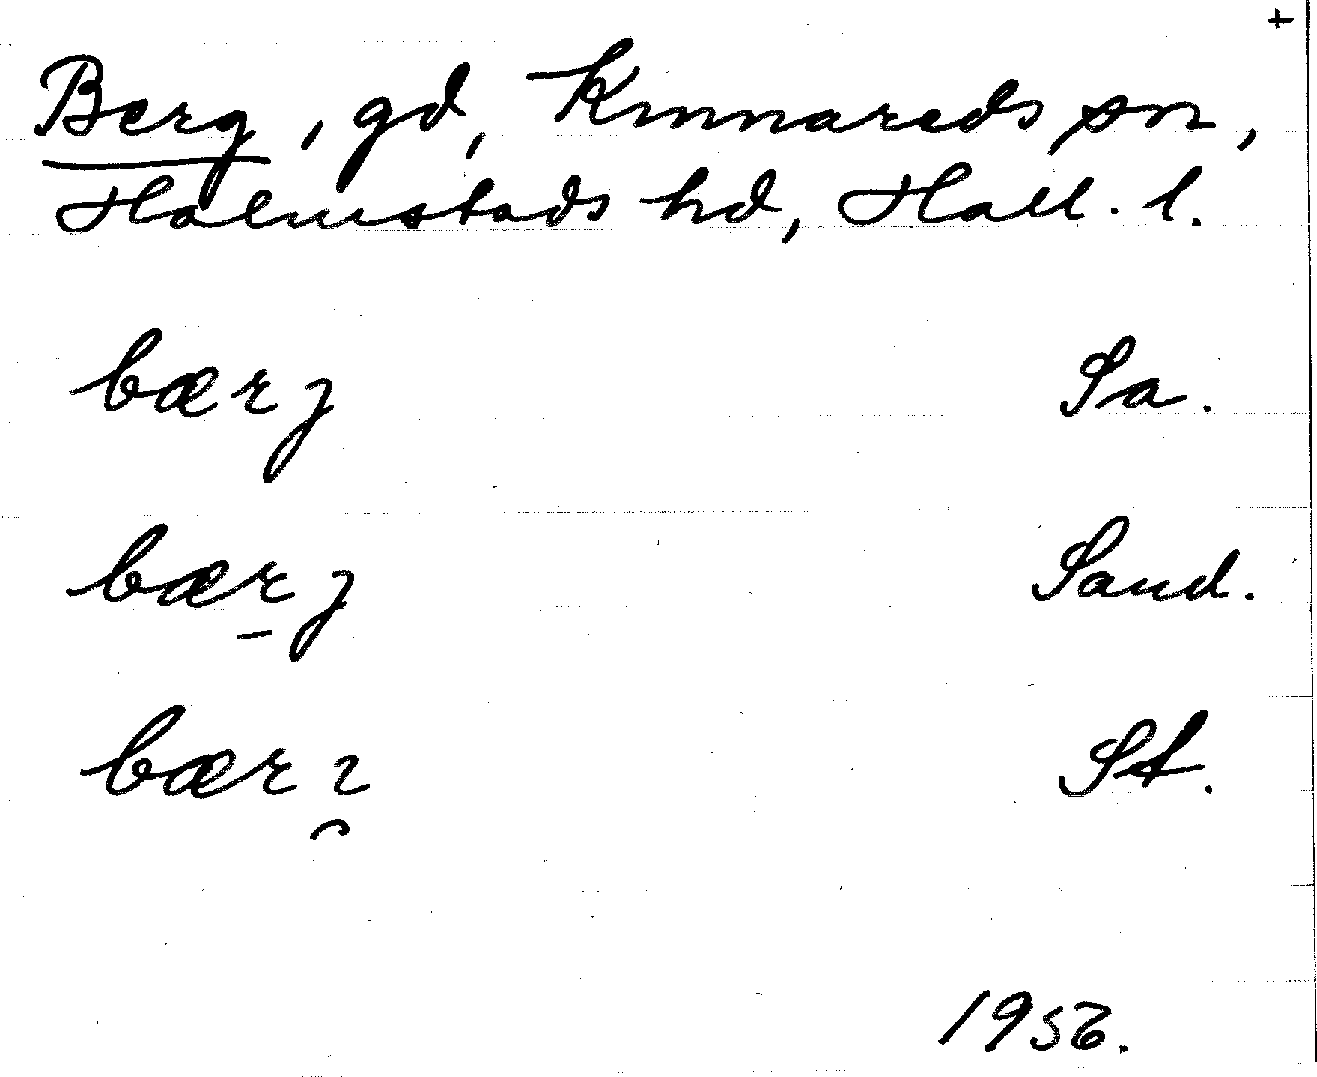 +
Berg, gd, Kinnareds sn,
Halmstads hd, Hall. l.
bærj Sa.
bæṟj Sand.
bærɿ̯ St.
1956.